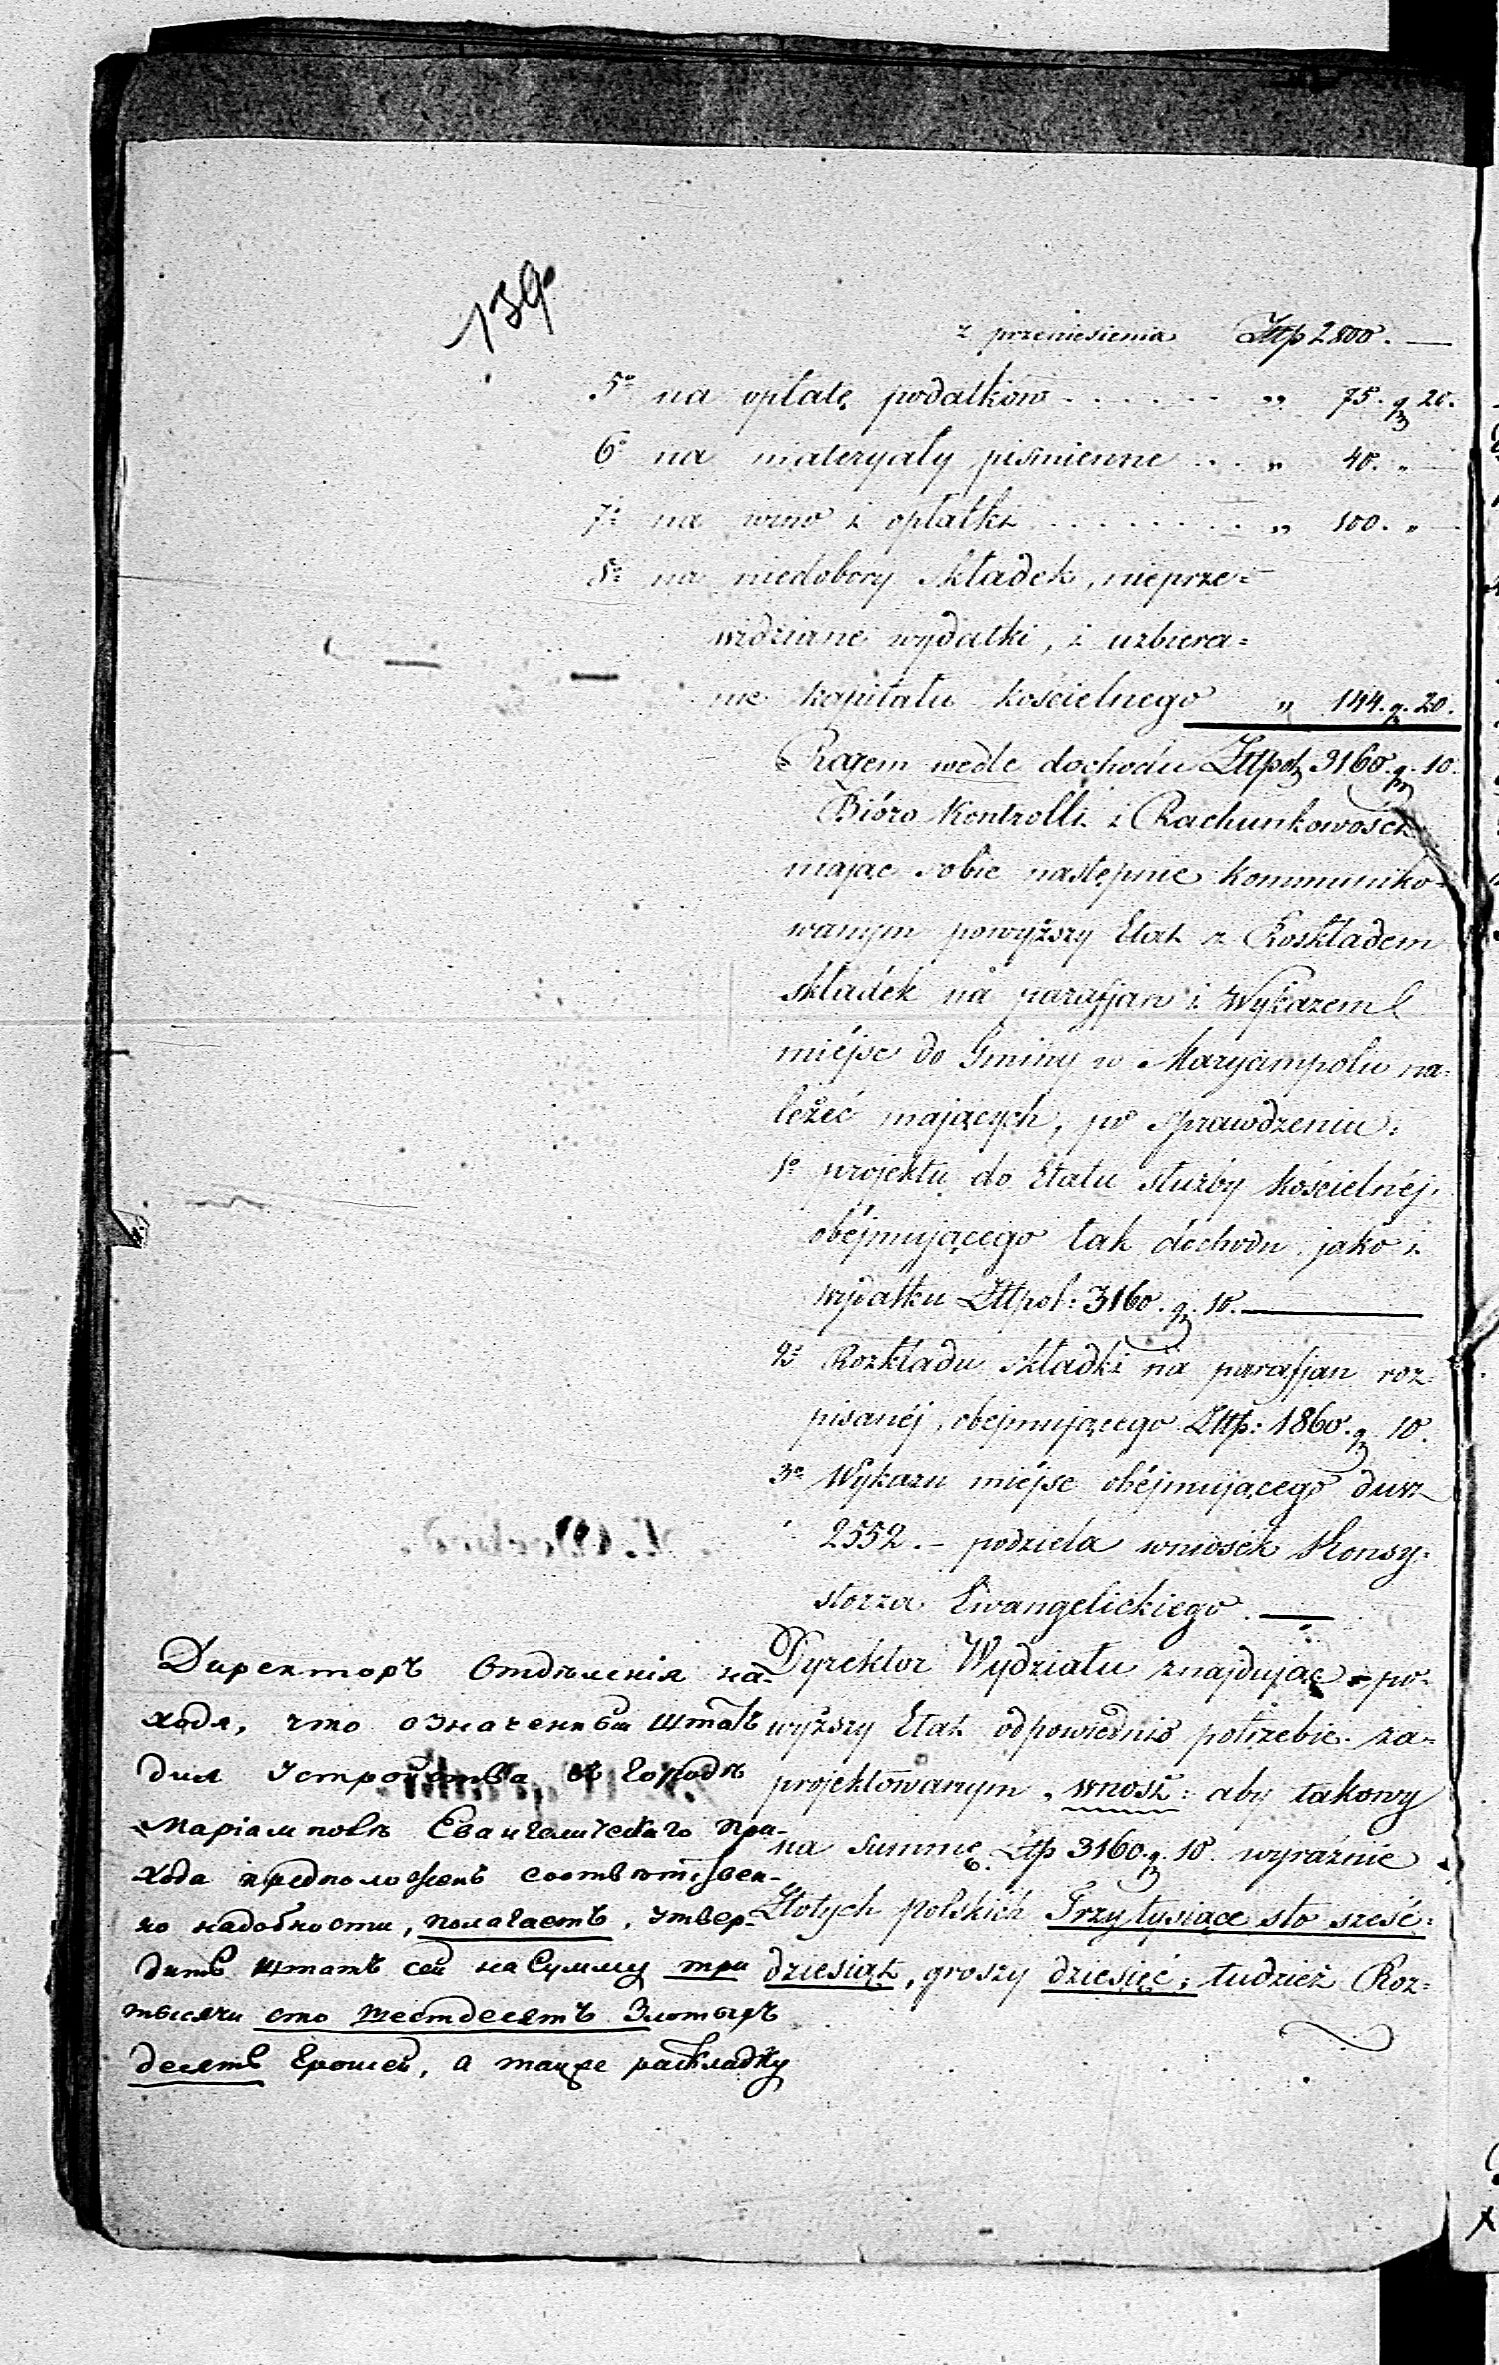 139
z przeniesienia Złtp 2800. —
5º na opłatę podatków . . . . . . „ 75. gr 20.
6º na materyały piśmienne . . . „ 40. „ —
7º na wino i opłatki . . . . . . . . „ 100. „ —
8º na niedobory składek, nieprze=
widziane wydatki, i uzbiera=
nie kapitału kościelnego „ 144. gr. 20.
Razem wedle dochodu Złtpol 3160. gr. 10.
Bióro Kontrolli i Rachunkowości
mając sobie następnie kommuniko=
wanym powyższy Etat z Roskładem
składek na parafjan i Wykazem
miéjsc do Gminy w Maryampolu na=
leżeć mających, po sprawdzeniu:
1º projektu do Etatu służby kościelnéj,
obéjmującego tak dochodu jako i
wydatku Złtpol: 3160. gr. 10. —
2º Rozkładu składki na parafjan roz=
pisanéj, obejmującego Złtp: 1860. gr 10.
3º Wykazu miéjsc obéjmującego dusz
2552. – podziela wniosek Konsy=
storza Ewangelickiego. —
Dyrektor Wydziału znajdując po=
wyższy Etat odpowiednio potrzebie za=
projektowanym, wnosi: aby takowy
na summę Złtp 3160 gr. 10. wyraźnie
Złotych polskich Trzy tysiące sto sześć=
dziesiąt, groszy dziesięć; tudzież Roz=
Директоръ Отдѣленія на-
ходя, что означенный штатъ
для устройства въ городѣ
Маріамполѣ Евангелическаго при-
хода предположенъ соотвѣтствен-
но надобности, полагаетъ, утвер-
дить штатъ сей на сумму три
тысячи сто шестдесятъ Злотыхъ
десять грошей, а также раскладку